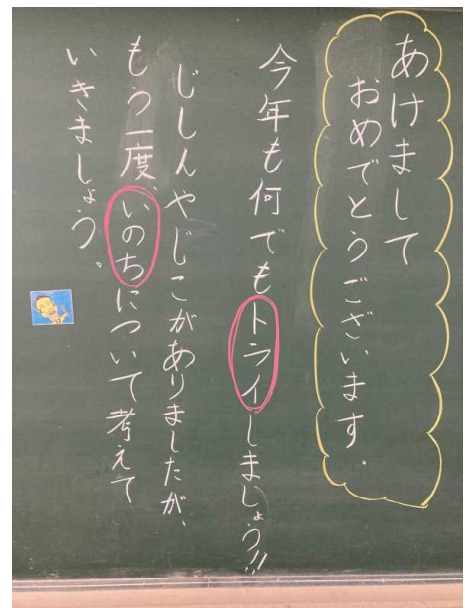 あけまして
おめでとうございます。
今年も何でもトライしましょう!!
じしんやじこがありましたが、
もう一度、いのちについて考えて
いきましょう。